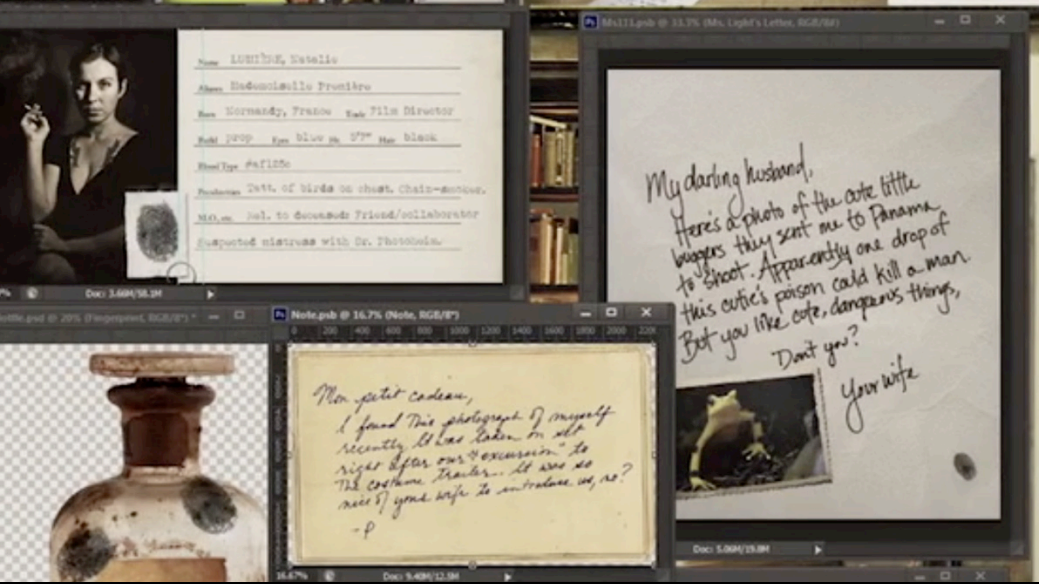 Ms111.psb @ 33.3% (Ms. Light's Letter, RGB/8#)
Name LUMIÈRE, Natalie
Aliases Mademoiselle Première
Born Normandy, France Trade Film Director
Build prop Eyes blue Ht. 5'7" Hair black
Blood Type #af125c
Tatt. of birds on chest. Chain-smoker.
M.O., etc. Rel. to deceased: Friend/collaborator
Suspected mistress with Dr. Photoheim.
Doc: 3.66M/58.1M
My darling husband,
Here's a photo of the cute little
buggers they sent me to Panama
to shoot. Apparently one drop of
this cutie's poison could kill a man.
But you like cute, dangerous things,
Don't you?
Your wife
Doc: 5.06M/19.8M
ottle.psd @ 20% (Fingerprint, RGB/8*) *
Note.psb @ 16.7% (Note, RGB/8*)
0 200 400 600 800 1000 1200 1400 1600 1800 2000 2200
Mon petit cadeau,
I found this photograph of myself
recently. It was taken on set
right after our "excursion" to
the costume trailer. It was so
nice of your wife to introduce us, no?
-P
16.67% Doc: 9.40M/12.5M